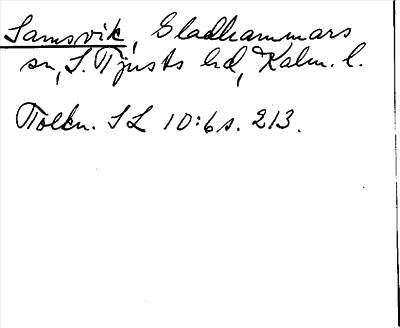 Samsvik, Gladhammars
sn, S. Tjusts hd, Kalm. l.
Tolkn. SL 10:6 s. 213.